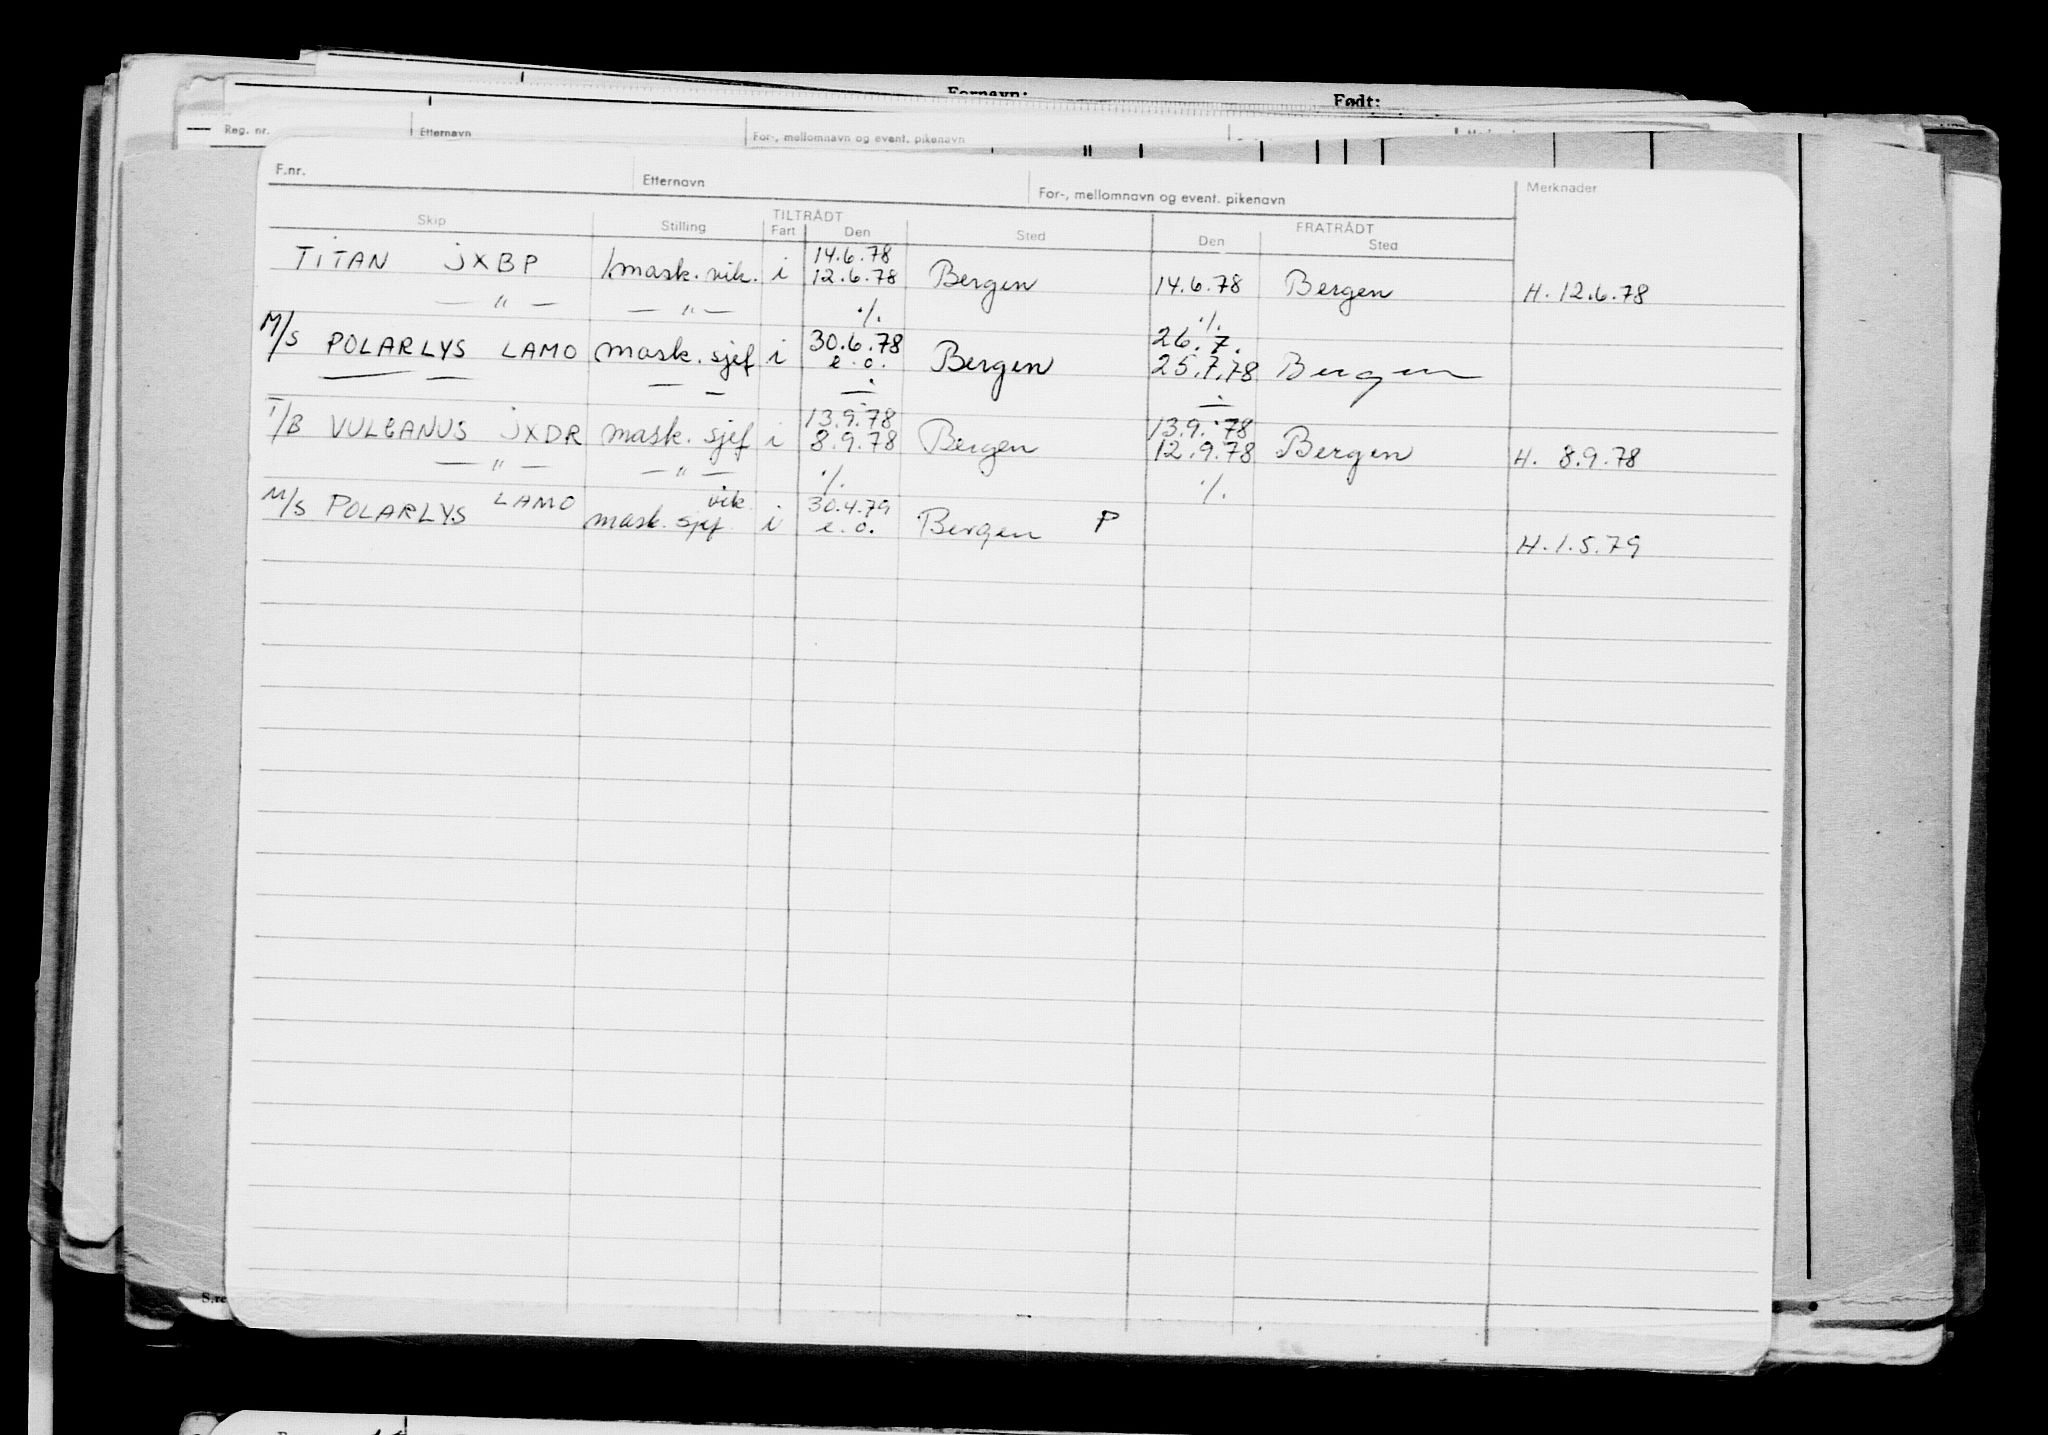 Fornavn: Født:
Reg. nr. Etternavn For-, mellomnavn og event. pikenavn
F.nr. Etternavn For-, mellomnavn og event. pikenavn Merknader
TILTRÅDT FRATRÅDT
Skip Stilling Fart Den Sted Den Sted
14.6.78
TITAN JXBP 1mask. vik. i 12.6.78 Bergen 14.6.78 Bergen H. 12.6.78
— " — — " — ./. ./.
30.6.78 26.7.
M/S POLARLYS LAMO mask. sjef i e.o. Bergen 25.7.78 Bergen
13.9.78 13.9.78
T/B VULCANUS JXDR mask. sjef i 8.9.78 Bergen 12.9.78 Bergen H. 8.9.78
— " — — " — ./. ./.
LAMO vik. 30.4.79
M/S POLARLYS mask. sjef i e.o. Bergen P
H. 1.5.79